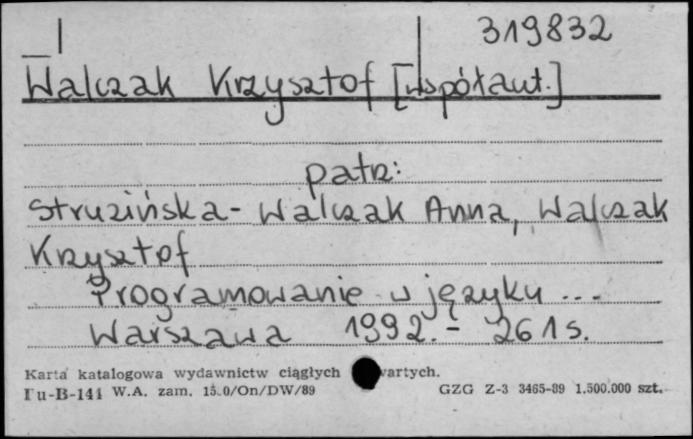 319832
Walczak Krzysztof [współaut.]
patrz:
Struzińska-Walczak Anna, Walczak
Krzysztof
Programowanie w języku ...
Warszawa 1992.- 261 s.
Karta katalogowa wydawnictw ciągłych
Pu-B-141 W.A. zam. /On/DW/89 GZG Z-3 3465-89 1.500.000 szt.